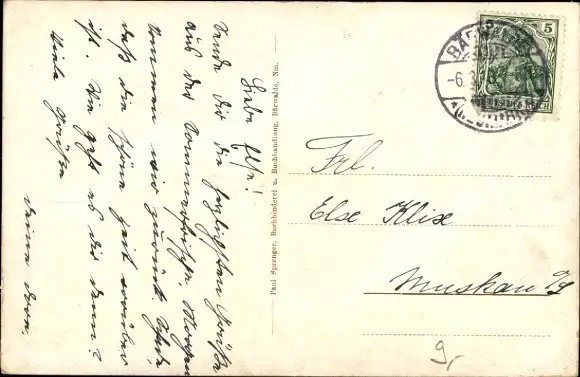 Liebe Else!
Sende Dir die herzlichsten Grüße
aus der Sommerfrische. Morgen
kommen wir zurück. Schade,
daß die schöne Zeit vorüber
ist. Wie geht es dir denn?
Viele Grüße
deine Dora.
Paul Sprenger, Buchbinderei u. Buchhandlung, Bärwalde, Nm.
5
BÄRWALDE
-6.
DEUTSCHES REICH
Frl.
Else Klix
Muskau
9,